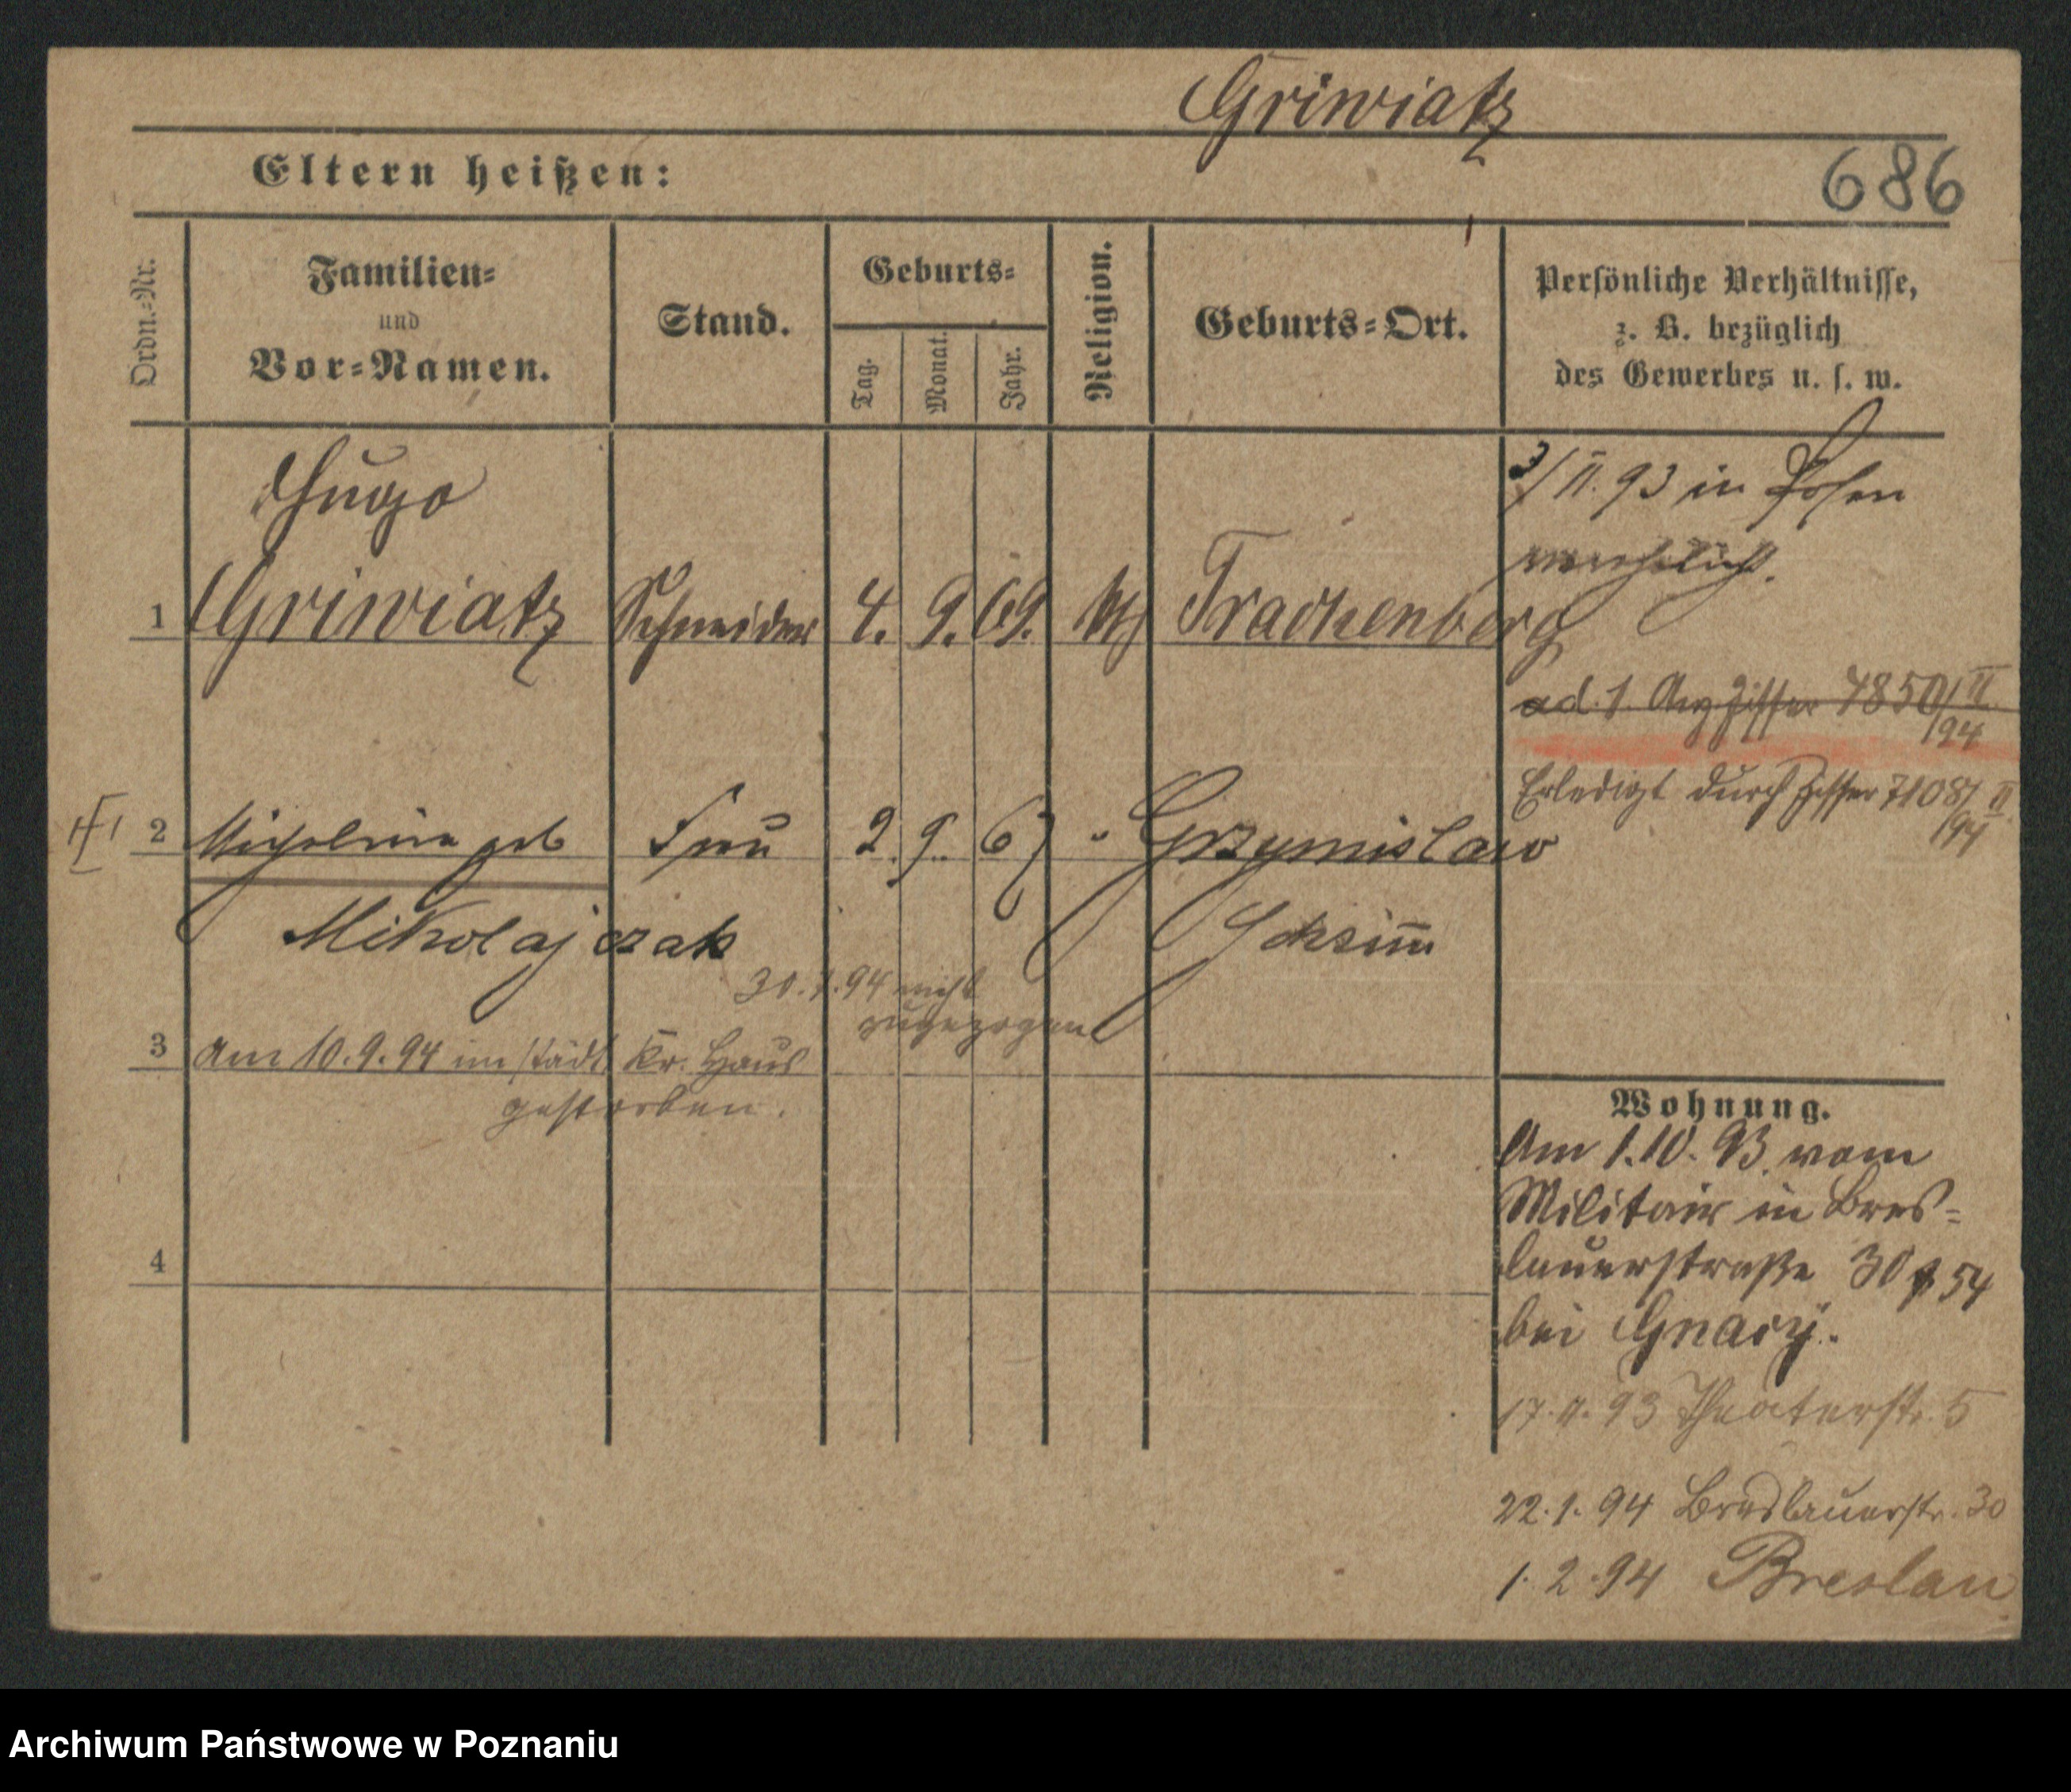 Griwiatz
Eltern heißen:
686
Ordn.-Nr.
Familien-
und
Vor-Namen.
Stand.
Geburts-
Tag.
Monat.
Jahr.
Religion.
Geburts-Ort.
Persönliche Verhältnisse,
z. B. bezüglich
des Gewerbes u. s. w.
Hugo
1 Griwiatz Schneider 4. 9. 69. Trachenberg
3/11. 93 in Posen
verehelicht.
ad. 1. Anz Ziffer 7850/II
/94
Erledigt durch Ziffer 7108/II
/94
2 Michalina geb Frau 2. 9. 67 " Grzymislaw
Mikolajczak Schrimm
30.1.94 nicht
zugezogen
3 Am 10.9.94 im städt Kr. Haus
gestorben.
4
Wohnung.
Am 1.10.93 vom
Militair in Bres-
lauerstraße 30 54
bei Gnacy.
17.11.93 Theaterstr. 5
22.1.94 Breslauerstr. 30
1.2.94 Breslau
Archiwum Państwowe w Poznaniu